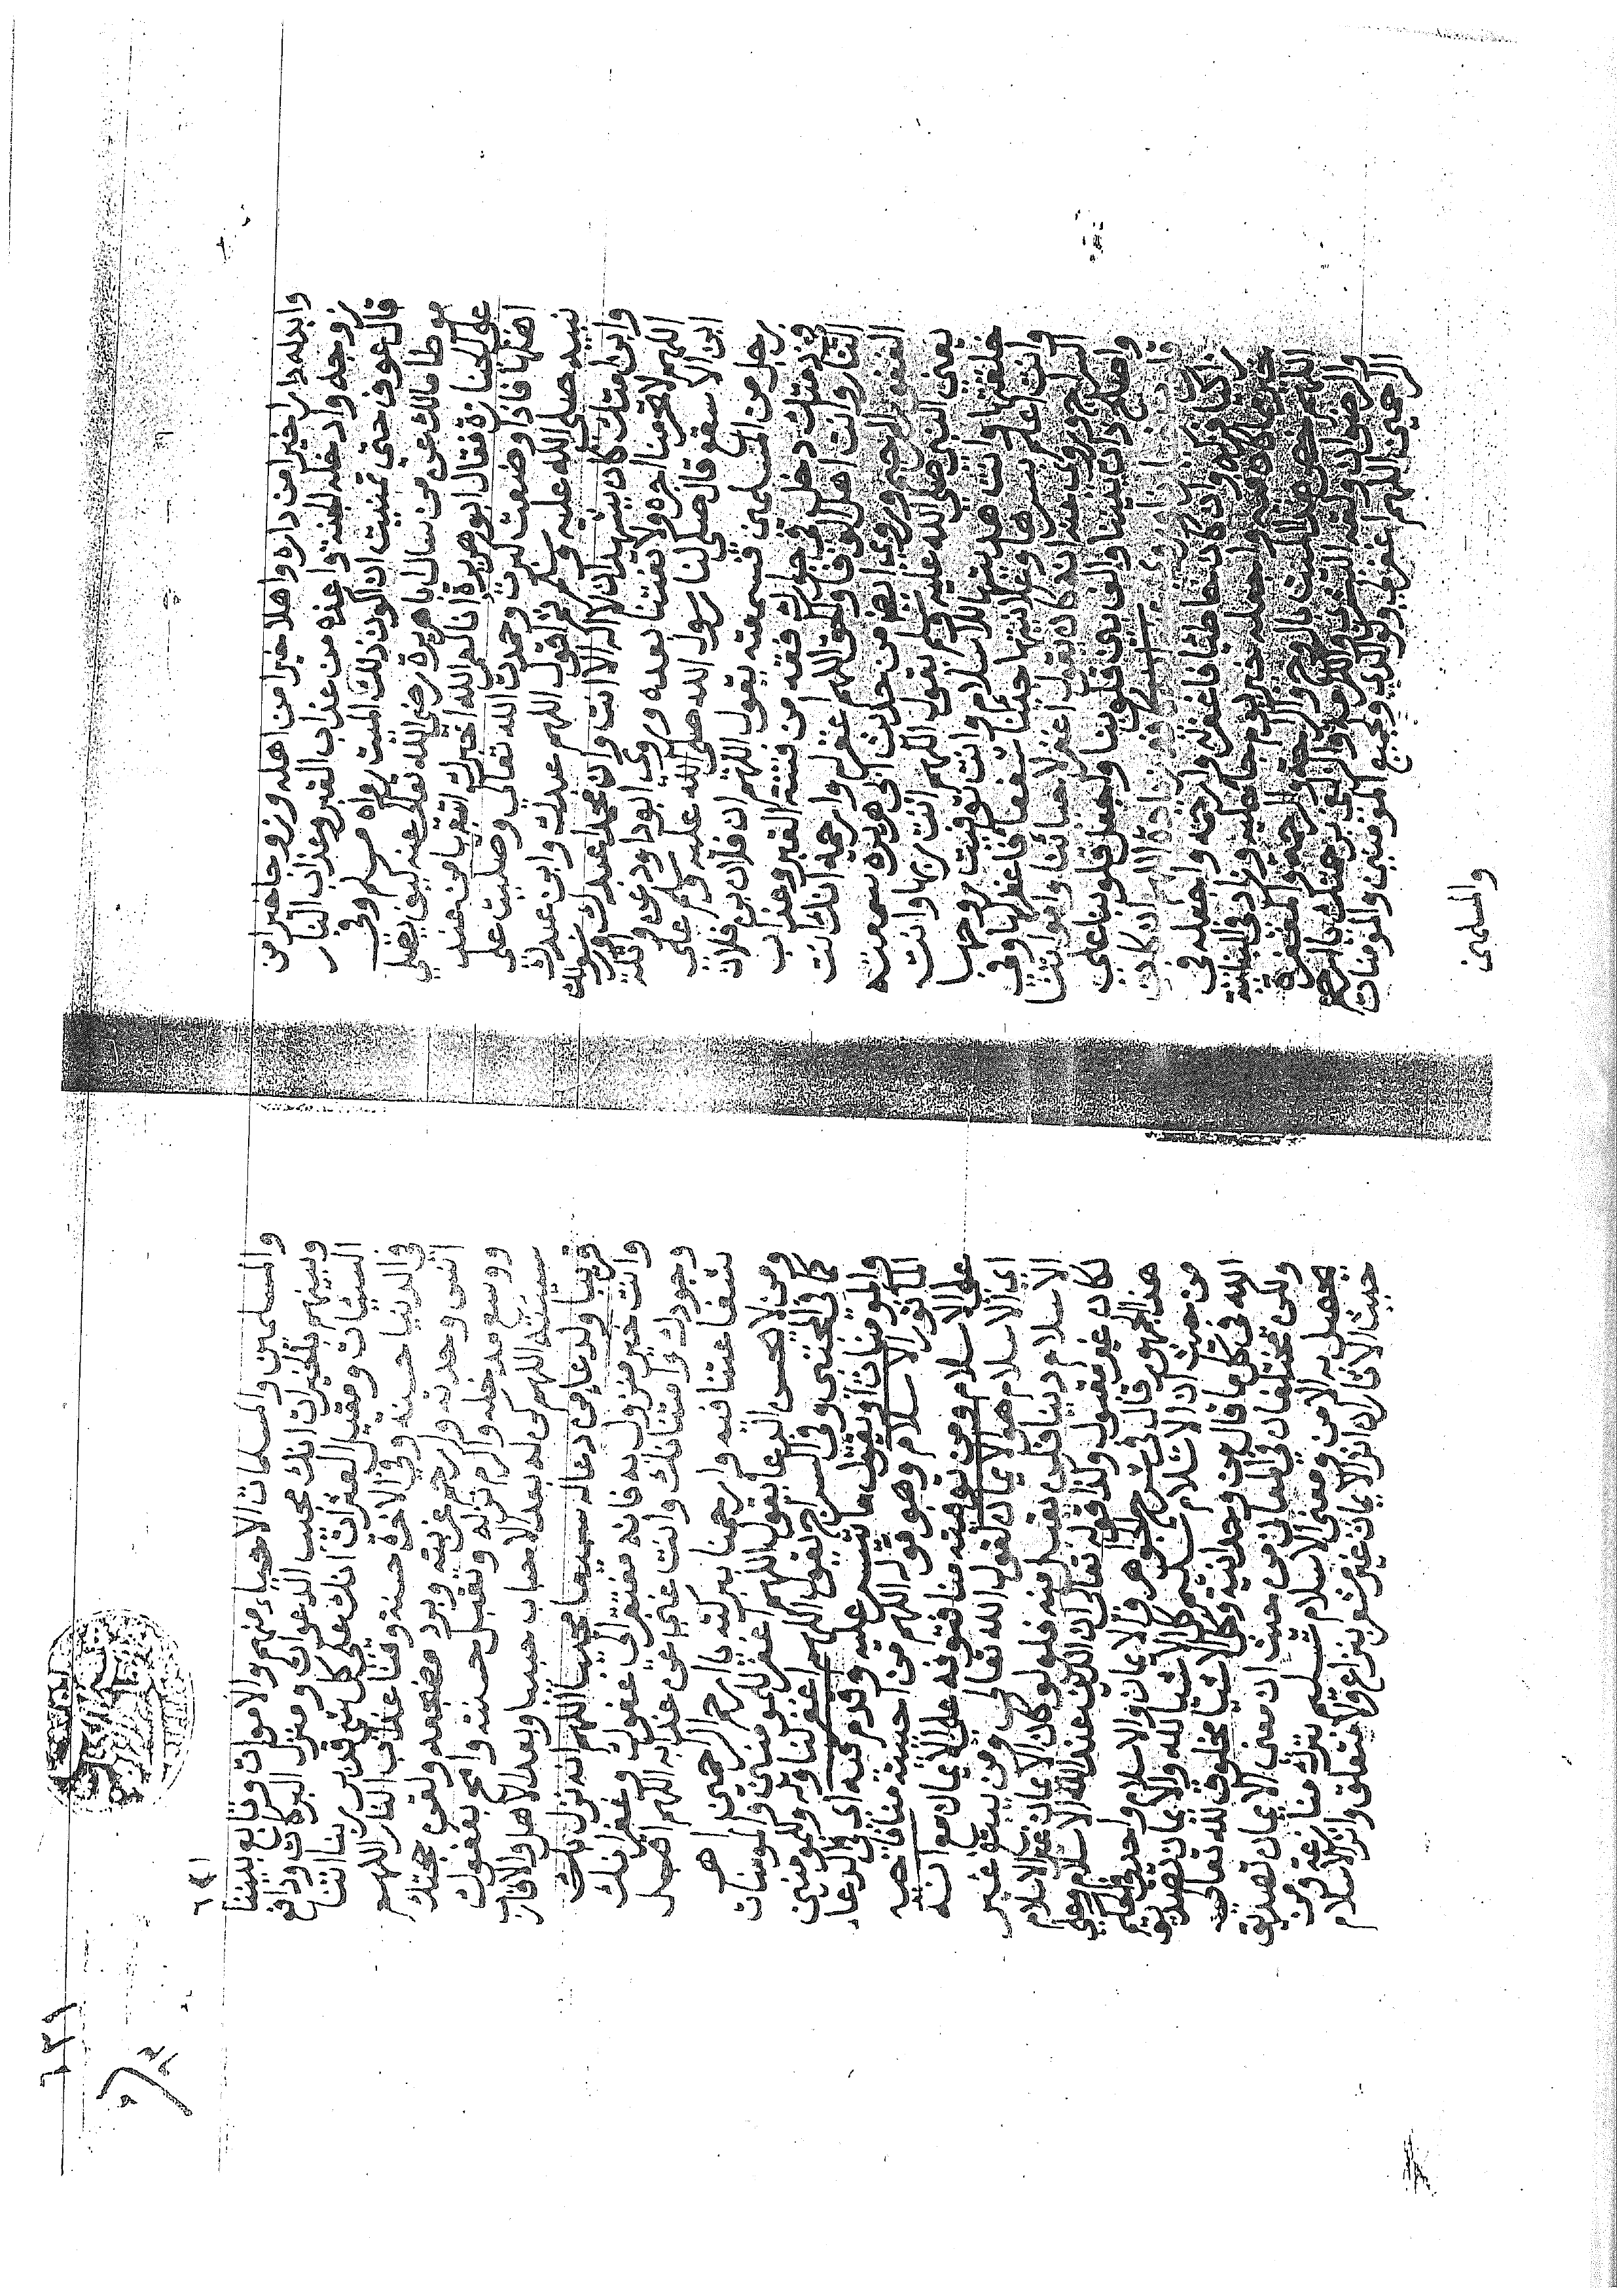 وابدله دارا خيرا من داره واهلا خيرا من اهله وزوجا خيرا من
زوجه وادخله الجنة واعذه من عذاب القبر وعذاب النار
قال عوف حتي تمنيت ان اكون ذلك الميت رواه مسلم وفي
موطا مالك عن من سال ابا هريرة رضي الله تعالي عنه كيف يصلي
علي الجنازة فقال ابو هريرة انا لعمر الله اخبرك اتبعها من عند
اهلها فاذا وضعت كبرت وحمدت الله تعالي وصليت علي
نبيه صلي الله عليه وسلم ثم اقول اللهم عبدك وابن عبدك
وابن امتك كان يشهد ان لا اله الا انت وان محمدا عبدك ورسولك
اللهم لا تحرمنا اجره ولا تفتنا بعده وروي ابو داود عن واثلة
ابن الاسقع قال صلي لنا رسول الله صلي الله عليه وسلم علي
رجل من المسلمين فسمعته يقول اللهم ان فلان بن فلان
في ذمتك دخل في جوارك فقه من فتنة القبر وعذاب
النار وانت اهل الوفا والحق اللهم اغفر له وارحمه انك انت
الغفور الرحيم وروي ايضا من حديث ابي هريرة سمعته
يعني النبي صلي الله عليه وسلم يقول اللهم انت ربها وانت
خلقتها وانت هديتها للاسلام وانت قبضت روحها
وانت اعلم بسرها وعلانيتها جئنا شفعا فاغفر لها وفي
السراج وروي عنه انه كان يقول اغفر لاحيائنا وامواتنا
واصلح ذات بيننا والف بين قلوبنا واجعل قلوبنا علي
زيادة اللهم ان كان
زاكيا فزكه وان كان خاطيا فاغفر له وارحمه واجعله في
خير مما كان فيه واجعله خير يوم جا عليه
اللهم خص هذا الميت بالروح والراحة والرحمة والمغفرة
والرضوان برحمتك يا ارحم
الراحمين اللهم اغفر لي ولوالدي ولجميع المومنين والمومنات
والمسلمين
١٤٦
والمسلمين والمسلمات الاحياء منهم والاموات وتابع بيننا
وبينهم بالخيرات انك مجيب الدعوات ومنزل البركات ودافع
السيئات ومقيل العثرات انك علي كل شي قدير ربنا اتنا
في الدنيا حسنة وفي الاخرة حسنة وقنا عذاب النار اللهم
انس وحدته وارحم غربته وبرد مضجعه ولقن حجته
ووسع مدخله واكرم نزله وتقبل حسنته وامح بعفوك
سيئته اللهم كن له بعد الاحباب حبيبا وبعد الاهل والاقارب
قريبا ولدعاء من دعا له سميعا مجيبا اللهم انه نزل بك
وانت خير منزول به فانه مفتقر الي عفوك وغفرانك
وجودك وامتنانك وانت غني عن عذابه اللهم اقبل
شفاعتنا فيه وارحمنا ببركته يا ارحم الراحمين اهـ
ومن لا يحسن الدعا يقول اللهم اغفر للمومنين والمومنات
كما في المجتبي وفي السراج يقول اللهم اغفر لنا وله وللمومنين
والمومنات او يقول ما تيسر عليه وقدم فيه اي في الدعا
الماثور الاسلام وهو قوله اللهم من احييته منا فاحيه
علي الاسلام ومن توفيته منا فتوفه علي الايمان مع انه
اي الاسلام هو الايمان لقول الله تعالي ومن يبتغ غير
الاسلام دينا فلن يقبل منه فلو كان الايمان غير الاسلام
لكان غير مقبول ولذا قوله تعالي ان الدين عند الله الاسلام وعلي
هذا الجمهور قال في شرح الجوهرة والايمان والاسلام واحد
من حيث ان الاسلام تسليم كل الاشيا لله والايمان تصديق
الله في كل ما قال من وحدانية وكل الاشيا مخلوق لله تعالي
ولكن مختلفان في المعاني من حيث ان معني الايمان تصديق
يحصل به الامن ومعني الاسلام تسليم بترك منازعة ومن
حيث الاثار اذ اثر الايمان غير مشعر بنزاع ولا متعلق واثر الاسلام